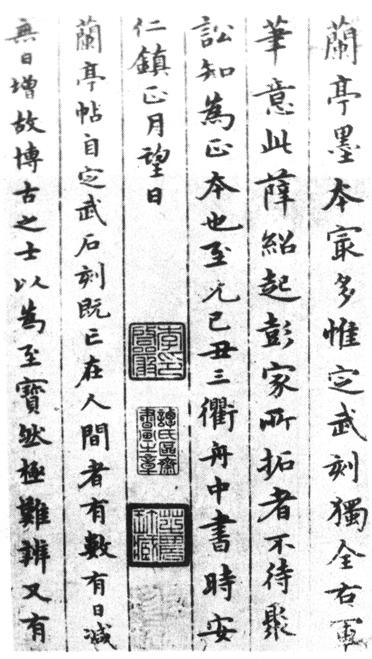 蘭亭墨本最多惟定武刻獨全右軍
筆意此薛紹起彭家所拓者不待聚
訟知為正本也至元己丑三衢舟中書時安
仁鎮正月望日
譚氏區齋書畫之章
蘭亭帖自定武石刻既亡在人間者有數有日減
無日增故博古之士以為至寶然極難辨又有